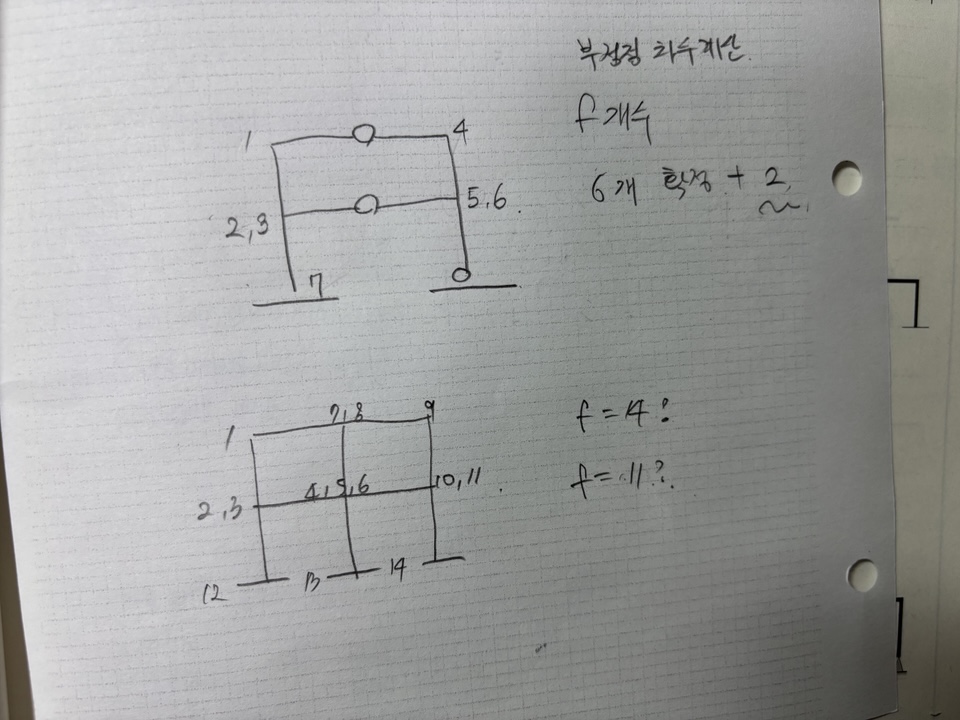 부정정 차수계산.
f 개수
6개 확정 + 2.
1
4
2,3
5,6.
7
f = 14?
f = 11?.
1
7,8
9
2,3
4,5,6
10,11.
12
13
14